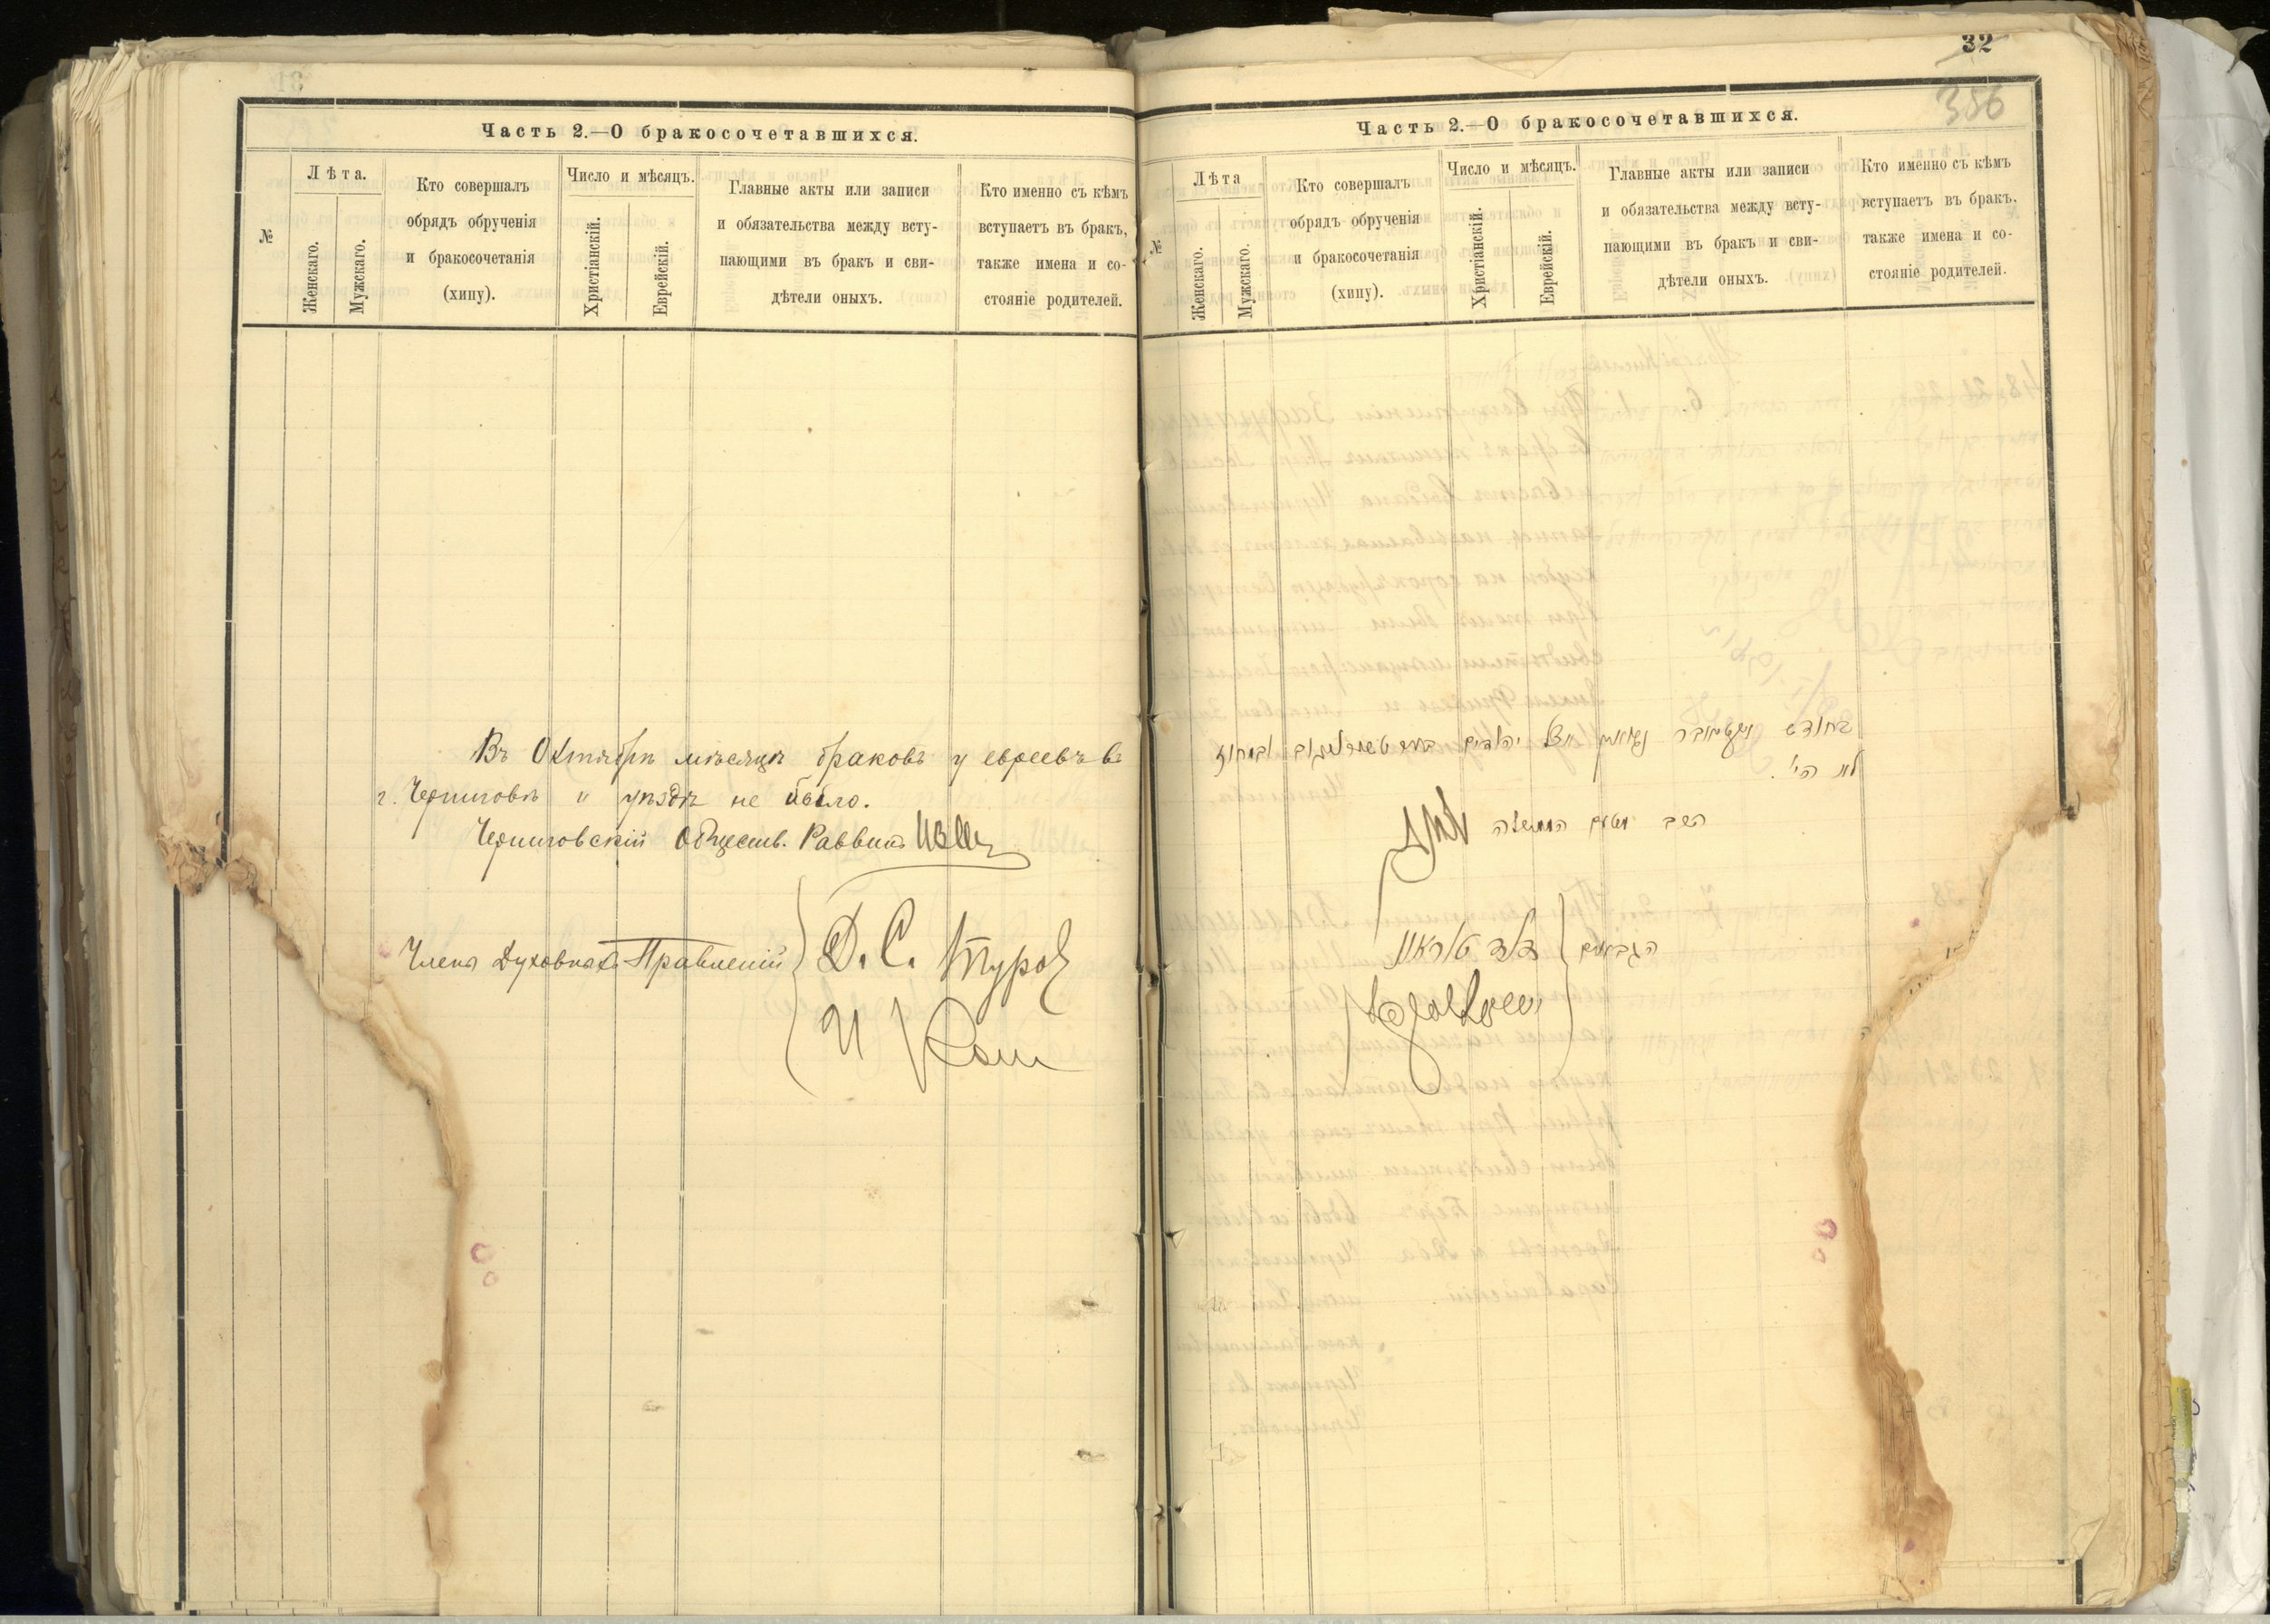 Часть 2.—О бракосочетавшихся.
№
Лѣта.
Женскаго.
Мужскаго.
Кто совершалъ
обрядъ обрученія
и бракосочетанія
(хипу).
Число и мѣсяцъ.
Христіанскій.
Еврейскій.
Главные акты или записи
и обязательства между всту-
пающими въ бракъ и сви-
дѣтели оныхъ.
Кто именно съ кѣмъ
вступаетъ въ бракъ,
также имена и со-
стояніе родителей.
Въ Октябрѣ мѣсяцѣ браковъ у евреевъ въ
г. Черниговѣ и уѣздѣ не было.
Черниговскій Обществ. Раввинъ
Члены Духовнаго Правленія
Д. С. Туров
И Кош
32
356
Часть 2.—О бракосочетавшихся.
№
Лѣта
Женскаго.
Мужскаго.
Кто совершалъ
обрядъ обрученія
и бракосочетанія
(хипу).
Число и мѣсяцъ.
Христіанскій.
Еврейскій.
Главные акты или записи
и обязательства между всту-
пающими въ бракъ и сви-
дѣтели оныхъ.
Кто именно съ кѣмъ
вступаетъ въ бракъ.
также имена и со-
стояніе родителей.
בחודש אקטיאבר נשואים אצל יהודים בעיר טשערניגוב ובמחוז
לא הי'.
הרב מטעם הממשלה
הגבאים